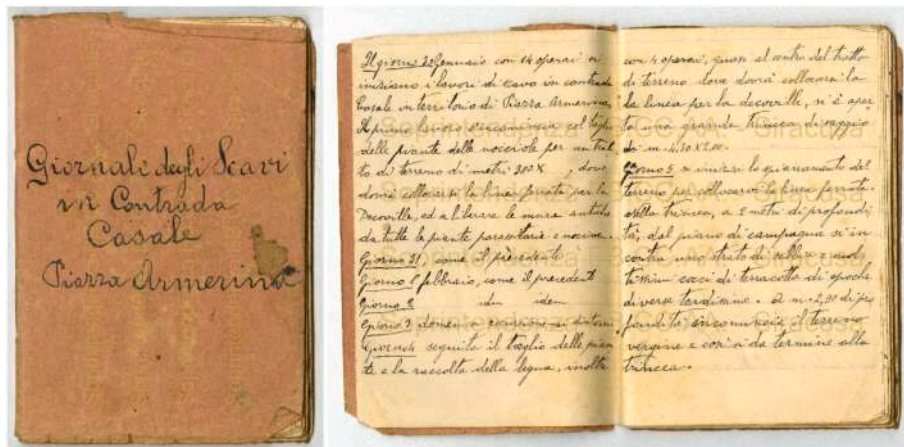 Giornale degli Scavi
in Contrada
Casale
Piazza Armerina
Il giorno Gennaio con 14 operai si
iniziano i lavori di scavo in contrada
Casale in territorio di Piazza Armerina.
Il primo lavoro s'incomincia col taglio
delle piante delle nocciole per un trat
to di terreno di metri 200 X , dove
dovrà collocarsi la linea ferrata per la
Decoville, ed a liberare le mura antiche
da tutte le piante parassitarie e nocive.
Giorno 31 come il precedente
Giorno 1 febbraio, come il precedente
Giorno 2 idem idem
Giorno 3 domenica
Giorno 4 seguita il taglio delle pian
te e la raccolta della legna, inoltre
con 4 operai, quasi al centro del tratto
di terreno dove dovrà collocarsi la
la linea per la decoville, si è aper
ta una grande trincea di saggio
di m. 4.30 X 2.00.
Giorno 5 si inizia lo spianamento del
terreno per collocarvi la linea ferrata.
Nella trincea, a 2 metri di profondi
tà, dal piano di campagna si in
contra uno strato di sabbia e molti
cocci di terracotta di epoche
diverse tardissime. A m. 2,90 di pro
fondità incomincia il terreno
vergine e così si dà termine alla
trincea.
Soprintendenza BB.CC.AA. Siracusa